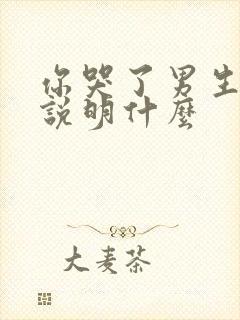 你哭了男生
説明什麼
大麦茶